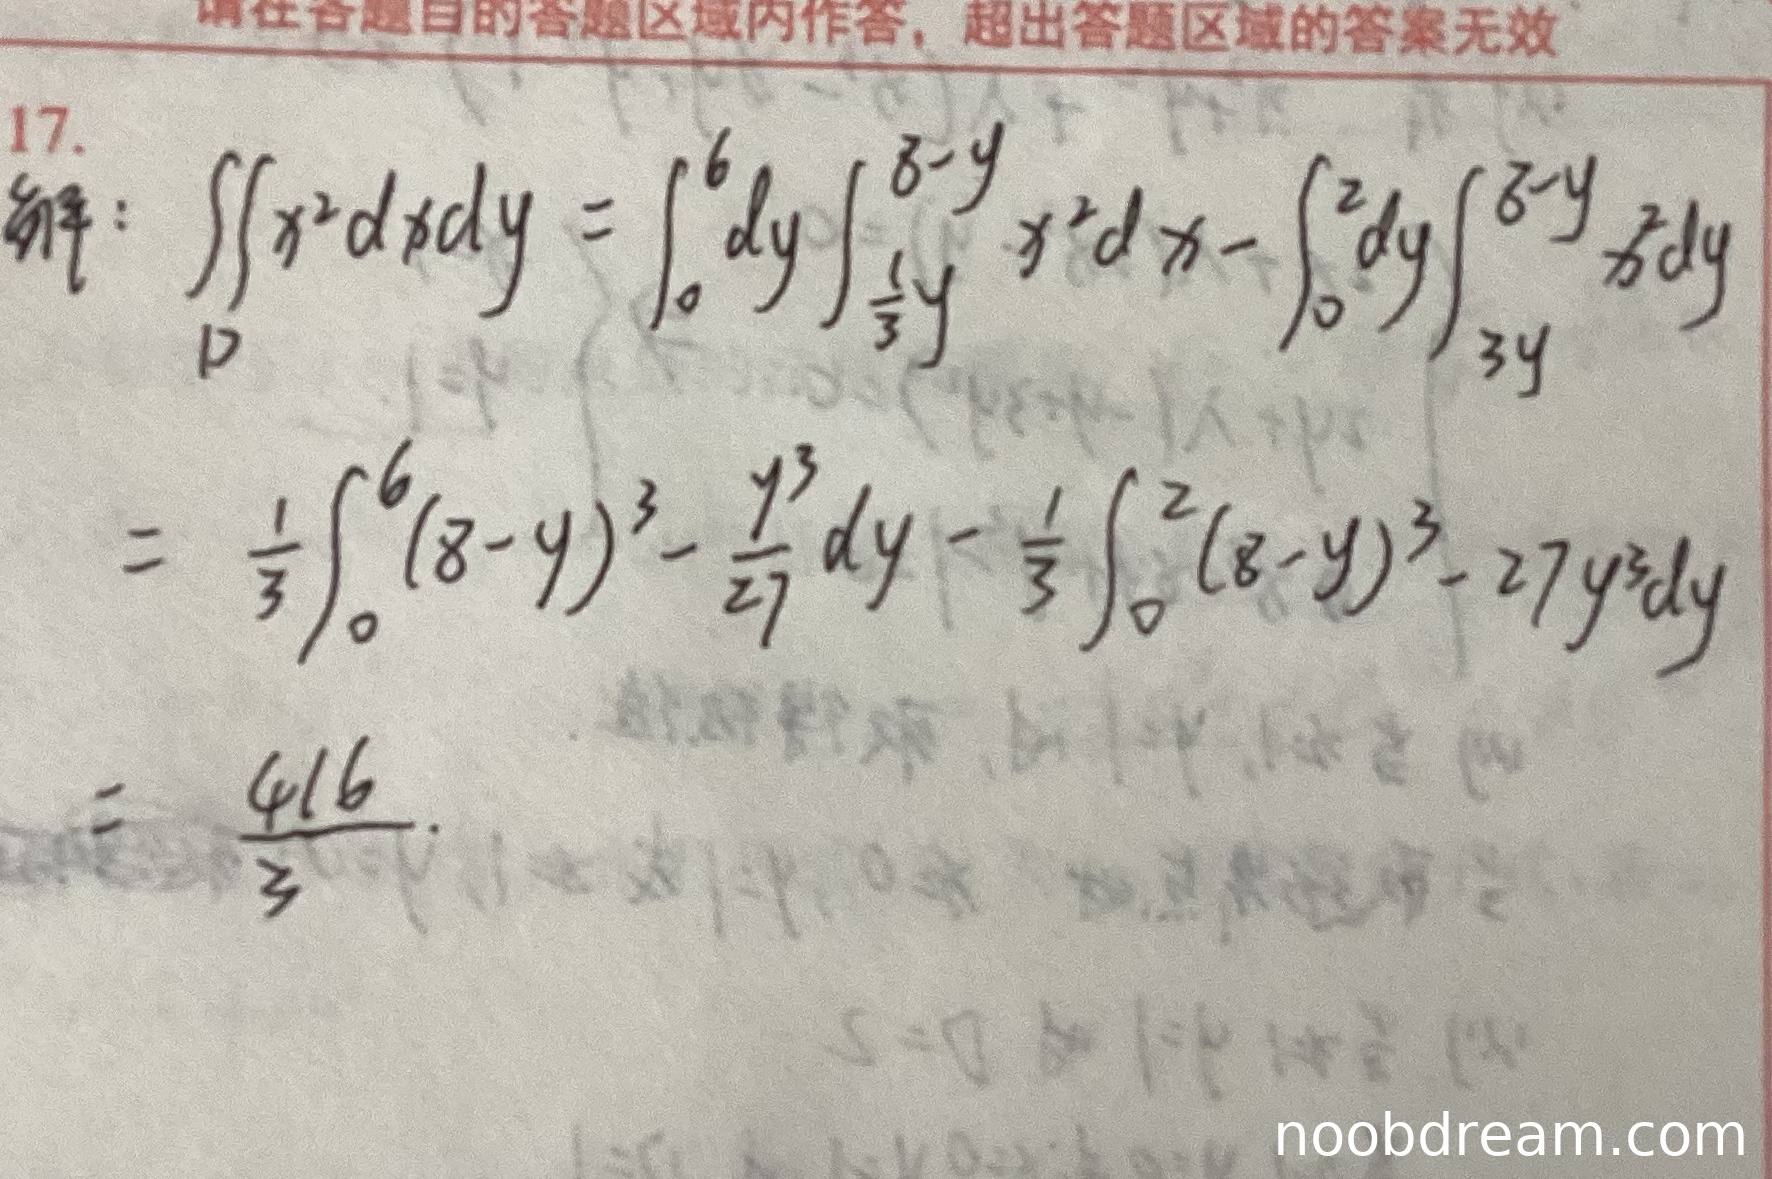 请在各题目的答题区域内作答，超出答题区域的答案无效
17.
解: ∬_D x²dxdy = ∫_0^6 dy ∫_{1/3 y}^{8-y} x²dx - ∫_0^2 dy ∫_{3y}^{8-y} x²dy
= 1/3 ∫_0^6 (8-y)³ - y³/27 dy - 1/3 ∫_0^2 (8-y)³ - 27y³dy
= 416/3.
noobdream.com